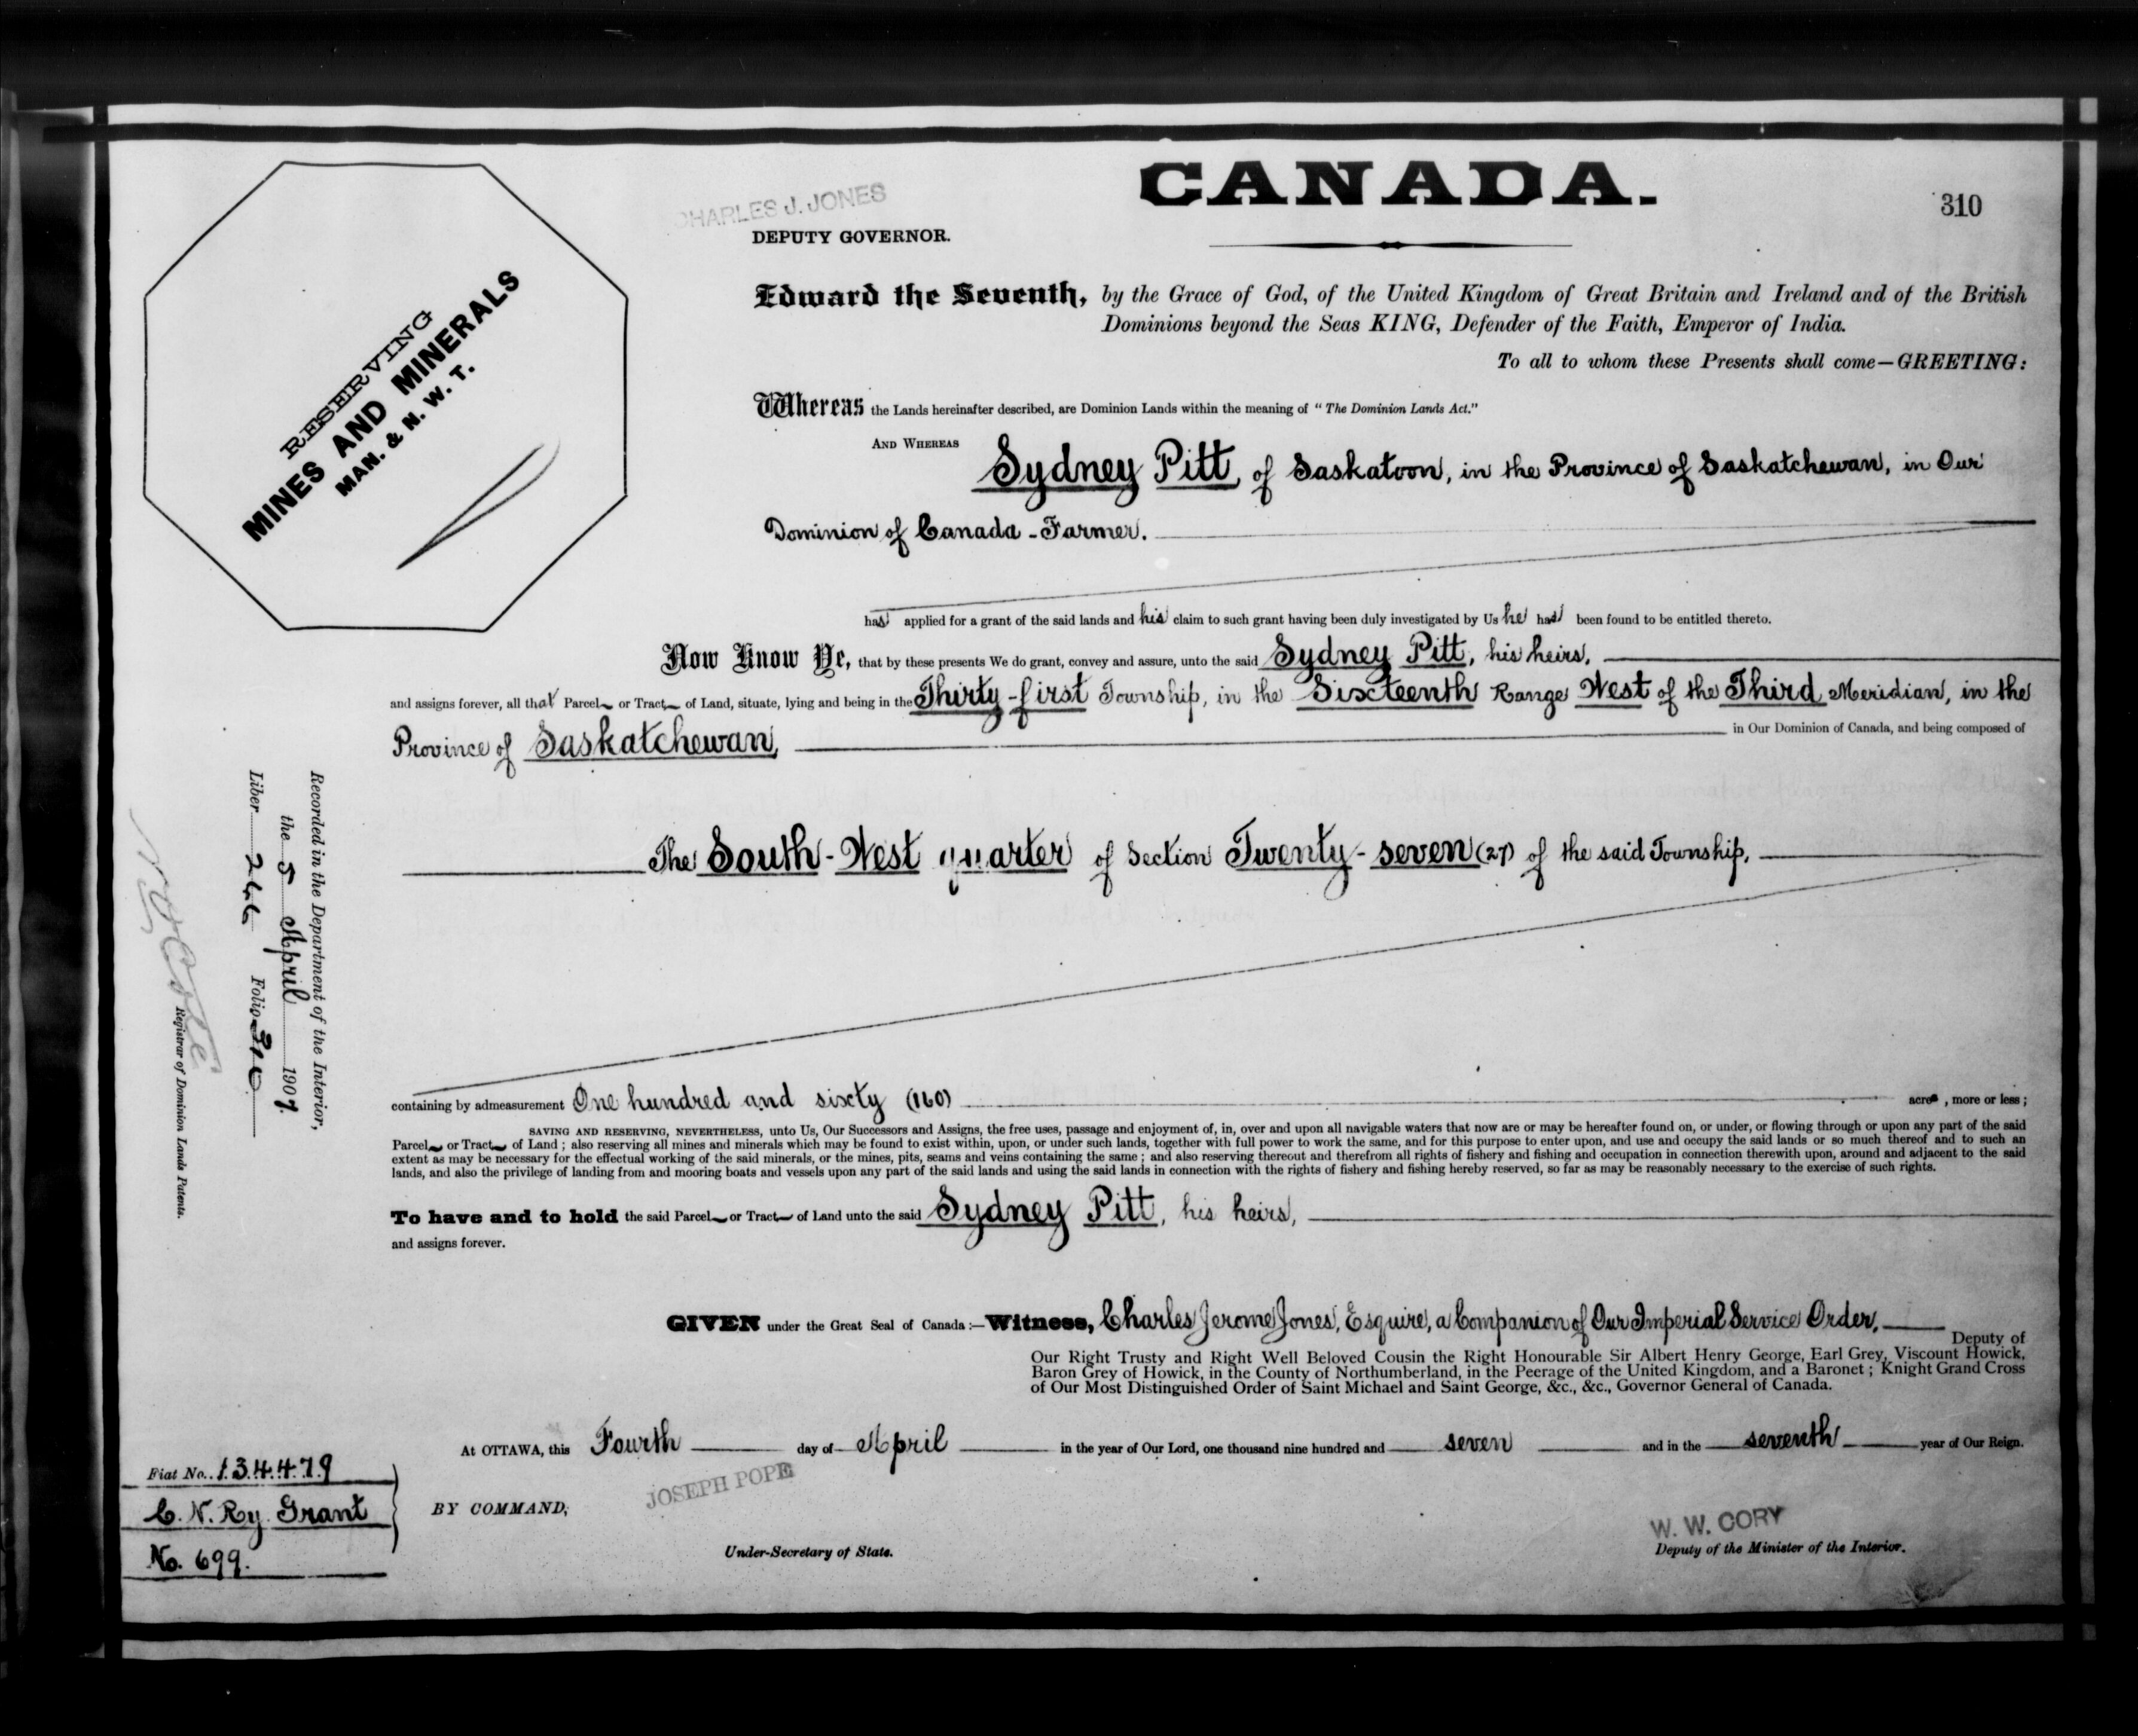 CANADA.
310
CHARLES J. JONES
DEPUTY GOVERNOR.
RESERVING
MINES AND MINERALS
MAN. & N. W. T.
Edward the Seventh, by the Grace of God, of the United Kingdom of Great Britain and Ireland and of the British
Dominions beyond the Seas KING, Defender of the Faith, Emperor of India.
To all to whom these Presents shall come—GREETING:
Whereas the Lands hereinafter described, are Dominion Lands within the meaning of "The Dominion Lands Act."
AND WHEREAS Sydney Pitt, of Saskatoon, in the Province of Saskatchewan, in Our
Dominion of Canada - Farmer.
has applied for a grant of the said lands and his claim to such grant having been duly investigated by Us he has been found to be entitled thereto.
Now Know Ye, that by these presents We do grant, convey and assure, unto the said Sydney Pitt, his heirs,
and assigns forever, all that Parcel or Tract of Land, situate, lying and being in the Thirty-first Township, in the Sixteenth Range West of the Third Meridian, in the
Province of Saskatchewan, in Our Dominion of Canada, and being composed of
The South-West quarter of Section Twenty-seven (27) of the said Township,
containing by admeasurement One hundred and sixty (160) acres, more or less;
SAVING AND RESERVING, NEVERTHELESS, unto Us, Our Successors and Assigns, the free uses, passage and enjoyment of, in, over and upon all navigable waters that now are or may be hereafter found on, or under, or flowing through or upon any part of the said
Parcel or Tract of Land; also reserving all mines and minerals which may be found to exist within, upon, or under such lands, together with full power to work the same, and for this purpose to enter upon, and use and occupy the said lands or so much thereof and to such an
extent as may be necessary for the effectual working of the said minerals, or the mines, pits, seams and veins containing the same; and also reserving thereout and therefrom all rights of fishery and fishing and occupation in connection therewith upon, around and adjacent to the said
lands, and also the privilege of landing from and mooring boats and vessels upon any part of the said lands and using the said lands in connection with the rights of fishery and fishing hereby reserved, so far as may be reasonably necessary to the exercise of such rights.
To have and to hold the said Parcel or Tract of Land unto the said Sydney Pitt, his heirs,
and assigns forever.
GIVEN under the Great Seal of Canada:—Witness, Charles Jerome Jones, Esquire, a Companion of Our Imperial Service Order,
Deputy of
Our Right Trusty and Right Well Beloved Cousin the Right Honourable Sir Albert Henry George, Earl Grey, Viscount Howick,
Baron Grey of Howick, in the County of Northumberland, in the Peerage of the United Kingdom, and a Baronet; Knight Grand Cross
of Our Most Distinguished Order of Saint Michael and Saint George, &c., &c., Governor General of Canada.
At OTTAWA, this Fourth day of April in the year of Our Lord, one thousand nine hundred and seven and in the seventh year of Our Reign.
JOSEPH POPE
BY COMMAND,
Under-Secretary of State.
W. W. CORY
Deputy of the Minister of the Interior.
Recorded in the Department of the Interior,
the 5 April 1907
Liber 266 Folio 310
Registrar of Dominion Lands Patents.
Fiat No. 134479
C. N. Ry. Grant
No. 699.